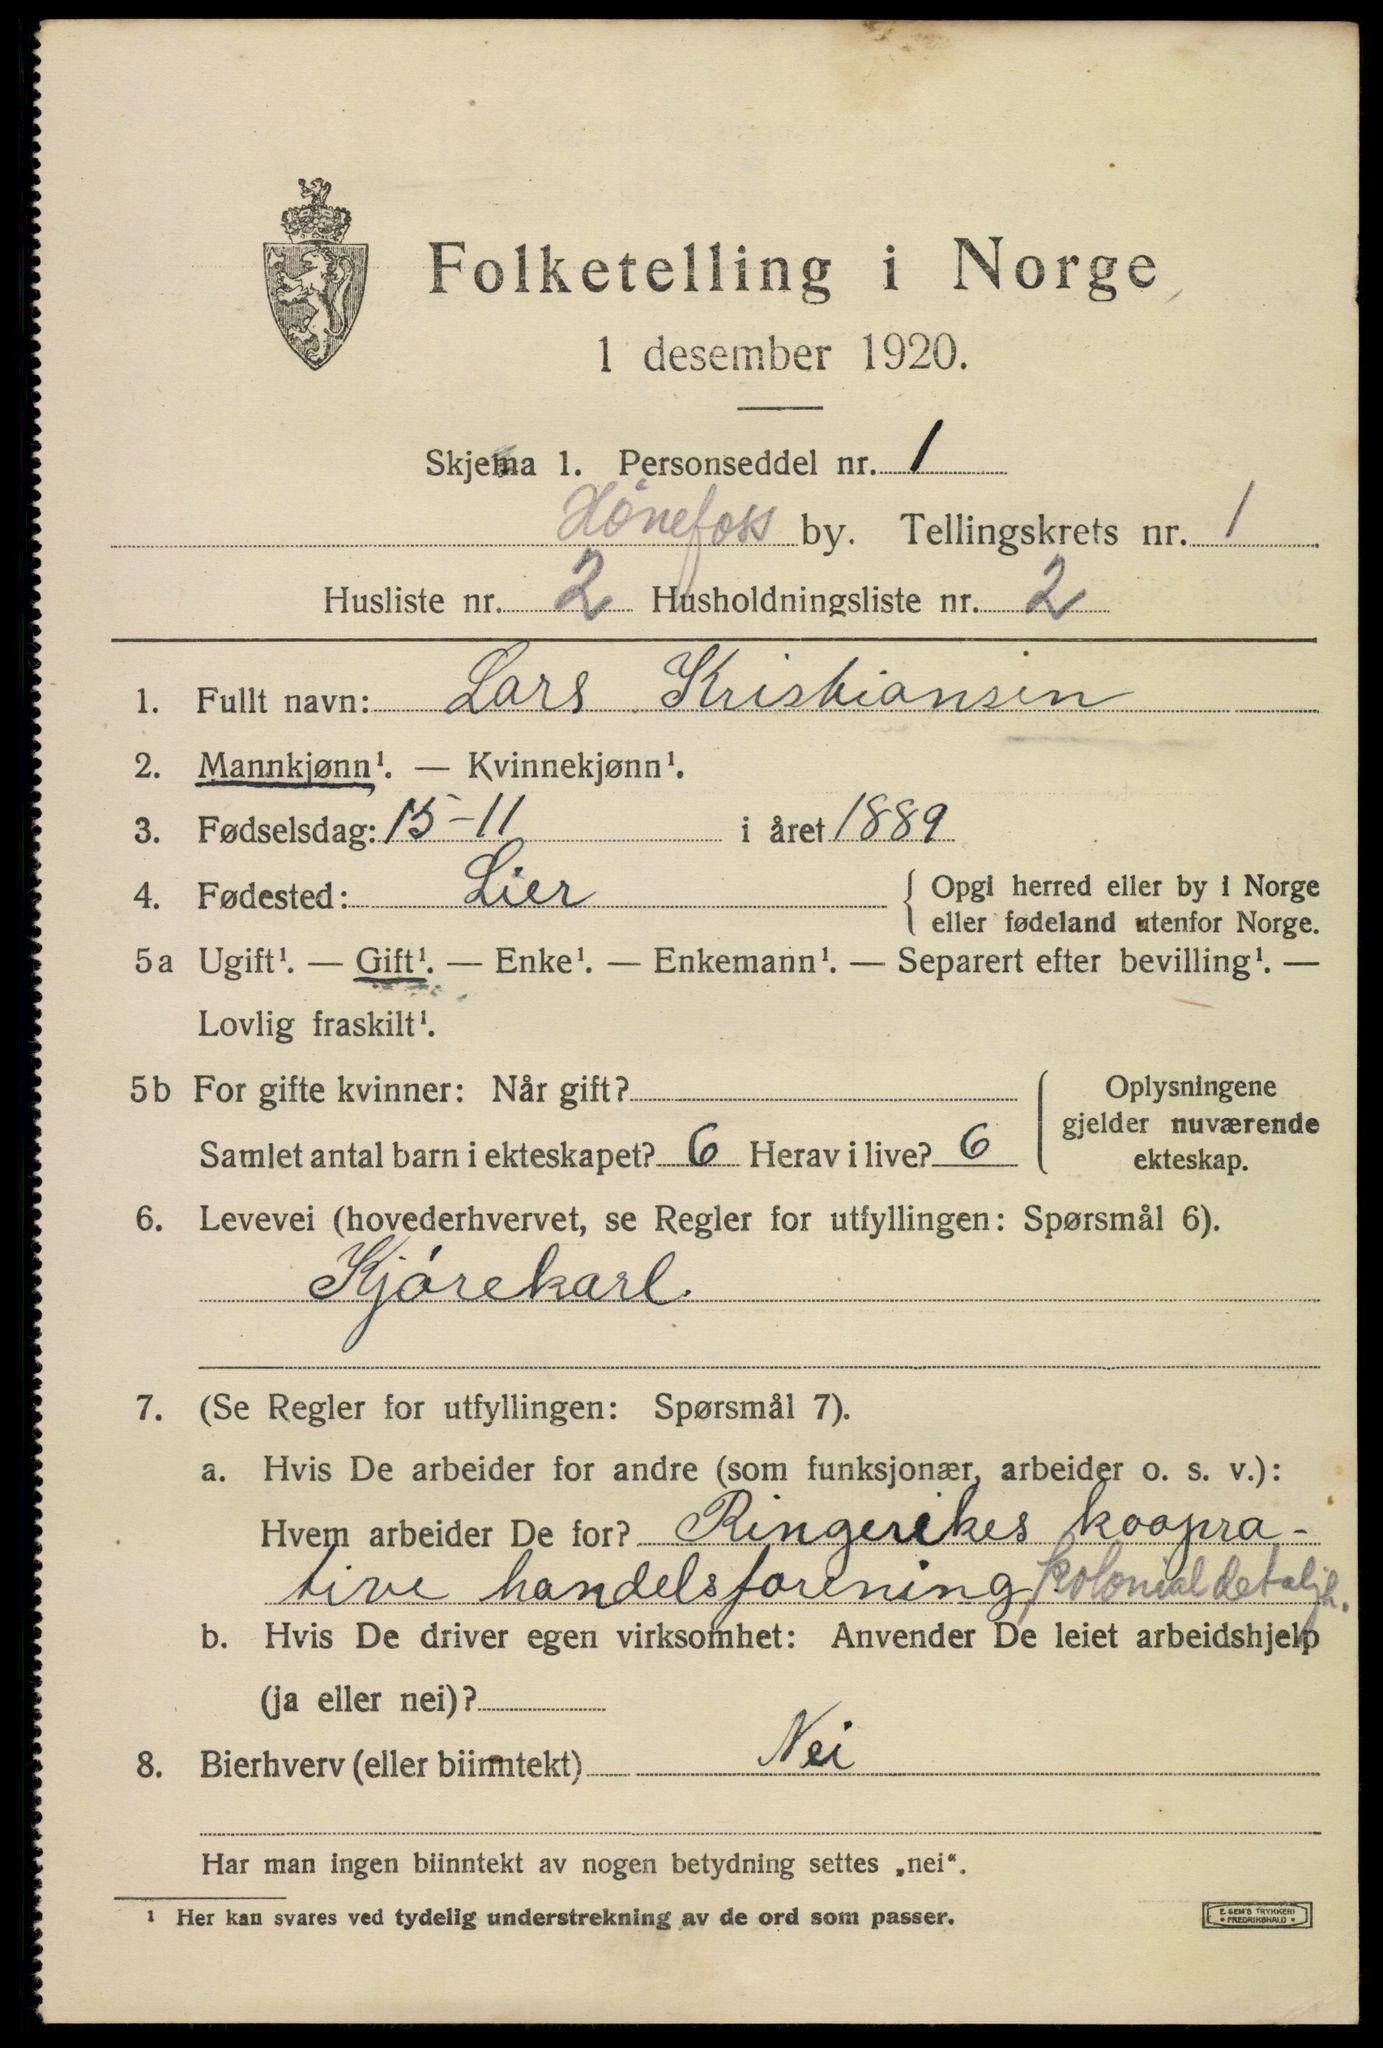 Folketelling i Norge
1 desember 1920.
Skjema 1. Personseddel nr. 1
Hönefoss by. Tellingskrets nr. 1
Husliste nr. 2 Husholdningsliste nr. 2
1. Fullt navn: Lars Kristiansen
2. Mannkjønn¹. — Kvinnekjønn¹.
3. Fødselsdag: 15-11 i året 1889
4. Fødested: Lier { Opgi herred eller by i Norge
eller fødeland utenfor Norge.
5a Ugift¹. — Gift¹. — Enke¹. — Enkemann¹. — Separert efter bevilling¹. —
Lovlig fraskilt¹.
5b For gifte kvinner: Når gift?
Samlet antal barn i ekteskapet? 6 Herav i live? 6
Oplysningene
gjelder nuværende
ekteskap.
6. Levevei (hovederhvervet, se Regler for utfyllingen: Spørsmål 6).
Kjórekarl.
7. (Se Regler for utfyllingen: Spørsmål 7).
a. Hvis De arbeider for andre (som funksjonær, arbeider o. s. v.):
Hvem arbeider De for? Ringerikes koopra-
tive handelsforening kolonialdetaljh.
b. Hvis De driver egen virksomhet: Anvender De leiet arbeidshjelp
(ja eller nei)?
8. Bierhverv (eller biinntekt) Nei
Har man ingen biinntekt av nogen betydning settes „nei“.
¹ Her kan svares ved tydelig understrekning av de ord som passer.
E. SEM'S TRYKKERI
• FREDRIKSHALD •